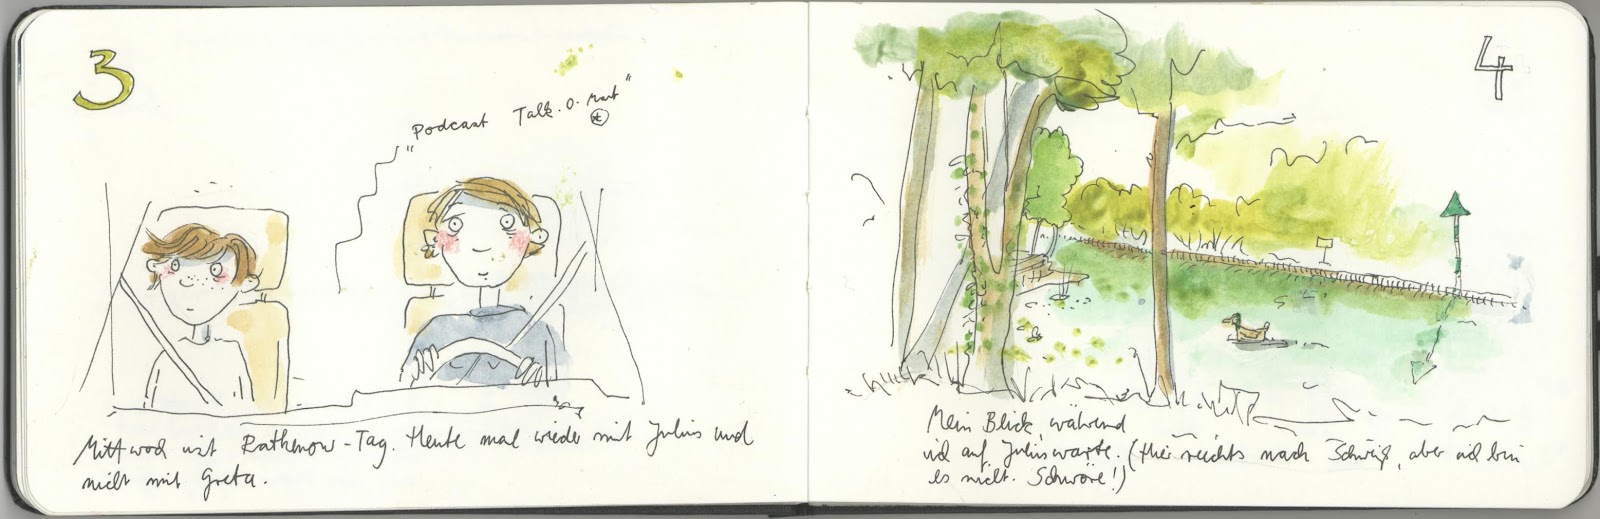 3
"Podcast Talk-O-Mat"
Mittwoch ist Rathenow-Tag. Heute mal wieder mit Julius und
nicht mit Greta.
4
Mein Blick, während
ich auf Julius warte. (Hier riechts nach Schweiß, aber ich bin
es nicht. Schwöre!)